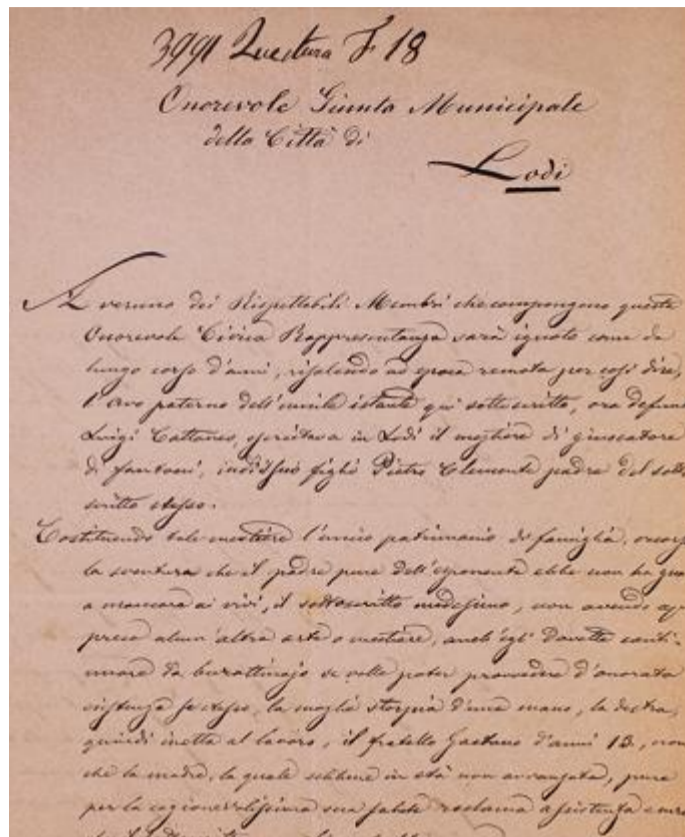 3991 Questura F 18
Onorevole Giunta Municipale
della Città di
Lodi
A veruno dei Rispettabili Membri che compongono questa
Onorevole Civica Rappresentanza sarà ignoto come da
lungo corso d'anni, risalendo ad epoca remota per così dire,
l'avo paterno dell'umile istante qui sottoscritto, ora defun
Luigi Cattaneo, esercitava in Lodi il mestiere di giuocatore
di fantocci, indi suo figlio Pietro Clemente padre del sotto
scritto stesso.
Costituendo tale mestiere l'unico patrimonio di famiglia,
la sventura che il padre pure dell'esponente ebbe non ha gua
a mancare ai vivi, il sottoscritto medesimo, non avendo ap
preso alcun'altra arte o mestiere, anch'egli dovette conti-
nuare da burattinajo se volle poter provvedere d'onorata
sistenza se stesso, la moglie storpia d'una mano, la destra,
quindi inetta al lavoro, il fratello Gaetano d'anni 13, non
che la madre, la quale sebbene in età non avanzata, pure
per la cagionevolissima sua salute reclama assistenza